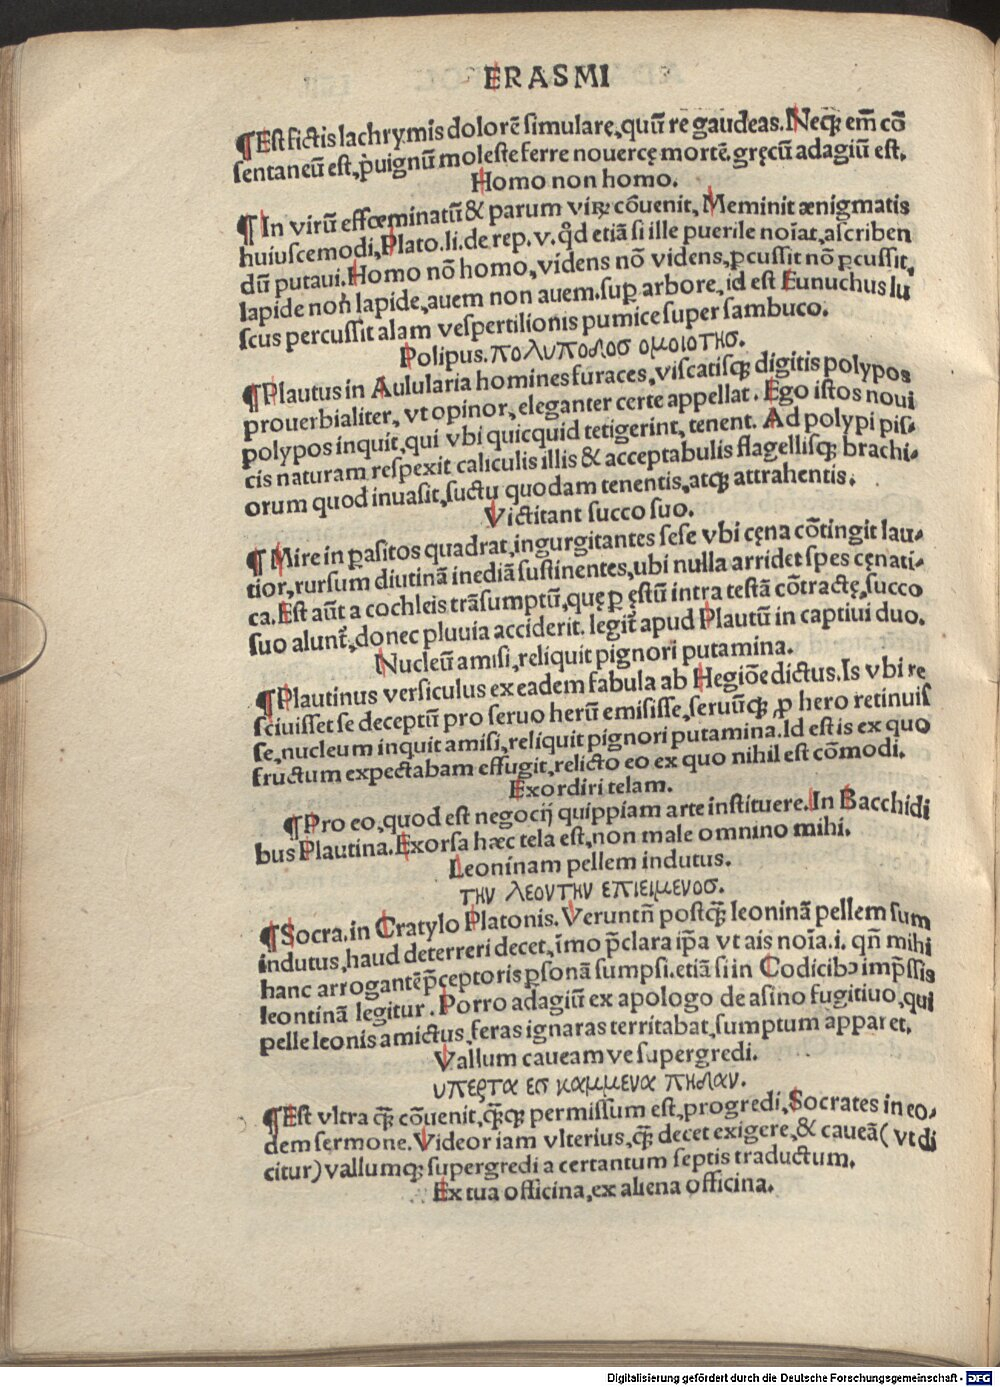 ERASMI
¶Est fictis lachrymis dolorē simulare, quū re gaudeas. Neqꝫ em̄ cō
sentaneū est, p̱uignū moleste ferre nouercę mortē. gręcū adagiū est.
Homo non homo.
¶ In virū effœminatū & parum viꝝ cōuenit, Meminit ænigmatis
huiuscemodi, Plato. li. de rep. v. qd̓ etiā si ille puerile noīat, ascriben
dū putaui. Homo nō homo, videns nō videns, ꝑcussit nō ꝑcussit,
lapide non lapide, auem non auem. suꝑ arbore, id est Eunuchus lu
scus percussit alam vespertilionis pumice super sambuco.
Polipus. πολυποδοσ ομοιοτησ.
¶Plautus in Aulularia homines furaces, viscatisqꝫ digitis polypos
prouerbialiter, vt opinor, eleganter certe appellat. Ego istos noui
polypos inquit, qui vbi quicquid tetigerint, tenent. Ad polypi pis-
cis naturam respexit caliculis illis & acceptabulis flagellisqꝫ brachi-
orum quod inuasit, suctu quodam tenentis, atqꝫ attrahentis.
Victitant succo suo.
¶ Mire in ꝑasitos quadrat, ingurgitantes sese vbi cęna cōtingit lau-
tior, rursum diutinā inediā sustinentes, ubi nulla arridet spes cęnati-
ca. Est aūt a cochleis trāsumptū, quę ꝑ ęstū intra testā cōtractę, succo
suo alunt̄, donec pluuia acciderit. legit̄ apud Plautū in captiui duo.
Nucleū amisi, reliquit pignori putamina.
¶Plautinus versiculus ex eadem fabula ab Hegiōe dictus. Is vbi re
sciuisset se deceptū pro seruo herū emisisse, seruūqꝫ ꝓ hero retinuis
se, nucleum inquit amisi, reliquit pignori putamina. Id est is ex quo
fructum expectabam effugit, relicto eo ex quo nihil est cōmodi.
Exordiri telam.
¶Pro eo, quod est negocij quippiam arte instituere. In Bacchidi
bus Plautina. Exorsa hæc tela est, non male omnino mihi.
Leoninam pellem indutus.
την λεοντην επιειμενοσ.
¶Socra. in Cratylo Platonis. Veruntn̄ postqꝫ̄ leoninā pellem sum
indutus, haud deterreri decet, īmo p̄clara ip̄a vt ais noīa. i. qn̄ mihi
hanc arrogantē p̄ceptoris ꝑsonā sumpsi. etiā si in Codicibꝰ imp̄ssis
leontinā legitur. Porro adagiū ex apologo de asino fugitiuo, qui
pelle leonis amictus feras ignaras territabat, sumptum apparet.
Vallum caueamve supergredi.
υπερτα εσ καμμενα πηδαν.
¶Est vltra qꝫ̄ cōuenit, qꝫ̄qꝫ permissum est, progredi, Socrates in eo-
dem sermone. Videor iam vlterius, qꝫ̄ decet exigere, & caueā (vt di
citur) vallumqꝫ supergredi a certantum septis traductum.
Ex tua officina, ex aliena officina.
Digitalisierung gefördert durch die Deutsche Forschungsgemeinschaft - DFG